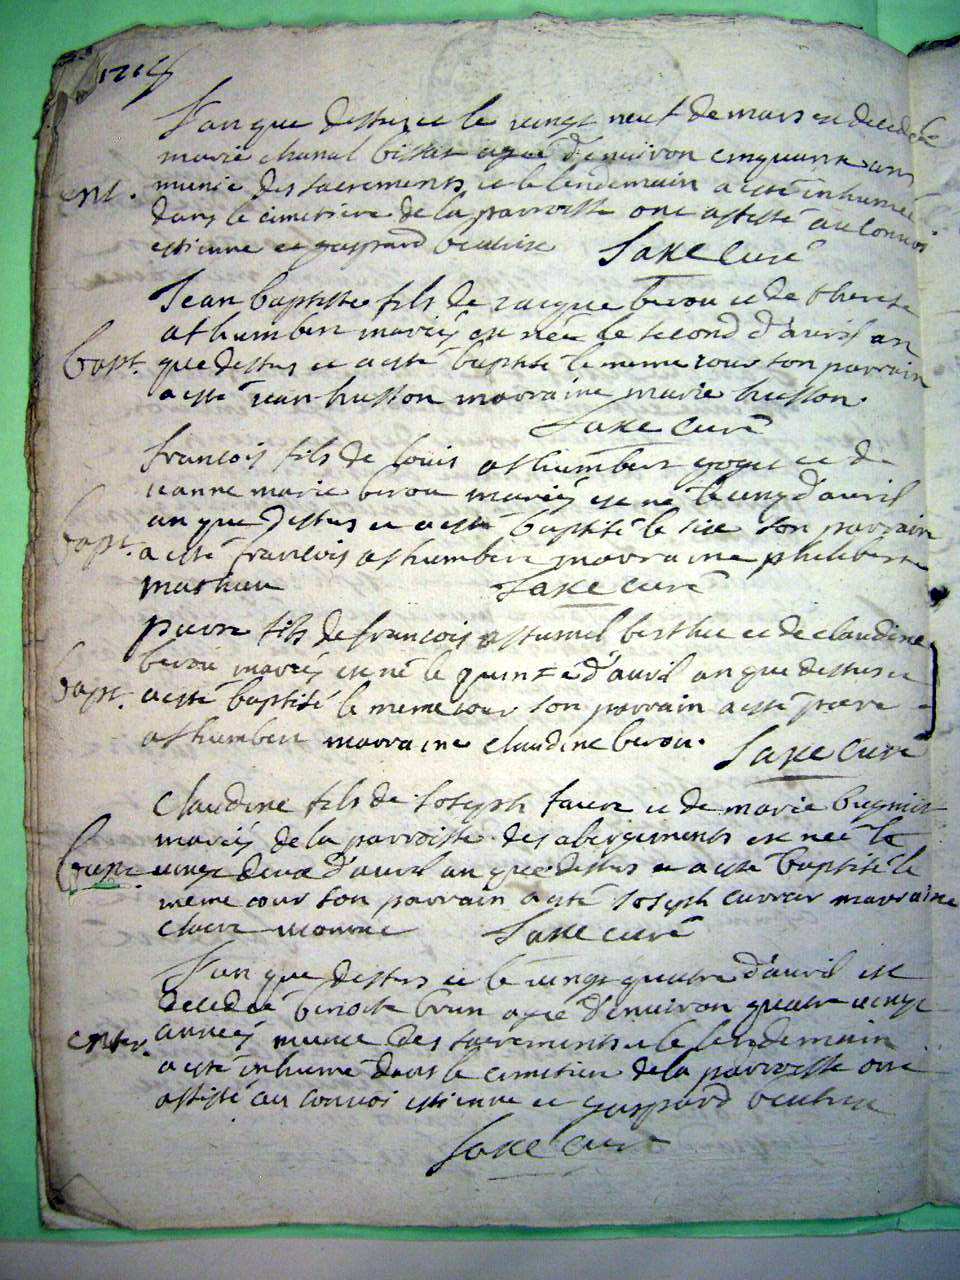 L'an que dessus et le vingt neuf de mars est decedée
marie chanal agée d'environ cinquante ans
ent. munie des sacrements et le lendemain a esté inhumée
dans le cimetiere de la parroisse ont assisté au convoi
estienne et gaspard
Saxe curé
Jean baptiste fils de jacque berou et de therese
athumbert mariés est née le second d'avril an
bapt. que dessus et a esté baptisé le meme jour son parrain
a esté jean husson marraine marie husson.
Saxe curé
francois fils de louis athumbert goget et de
jeanne marie berou mariés est né le cinq d'avril
bapt. an que dessus et a esté baptisé le six son parrain
a esté francois athumbert marraine philiberte
mathieu Saxe curé
pierre fils de francois berthet et de claudine
berou mariés est né le quinze d'avril an que dessus et
bapt. a esté baptisé le meme jour son parrain a esté pierre
athumbert marraine claudine berou.
Saxe curé
Claudine fils de Joseph faure et de marie
mariés de la parroisse des abergements est née le
bapt. vingt deux d'avril an que dessus et a esté baptisé le
meme jour son parrain a esté Joseph marraine
claire Saxe curé
L'an que dessus et le vingt quatre d'avril est
decedée benoite brun agée d'environ quatre vingt
enter. années munie des sacrements et le lendemain
a esté inhumé dans le cimetiere de la parroisse ont
assisté au convoi estienne et gaspard
Saxe curé